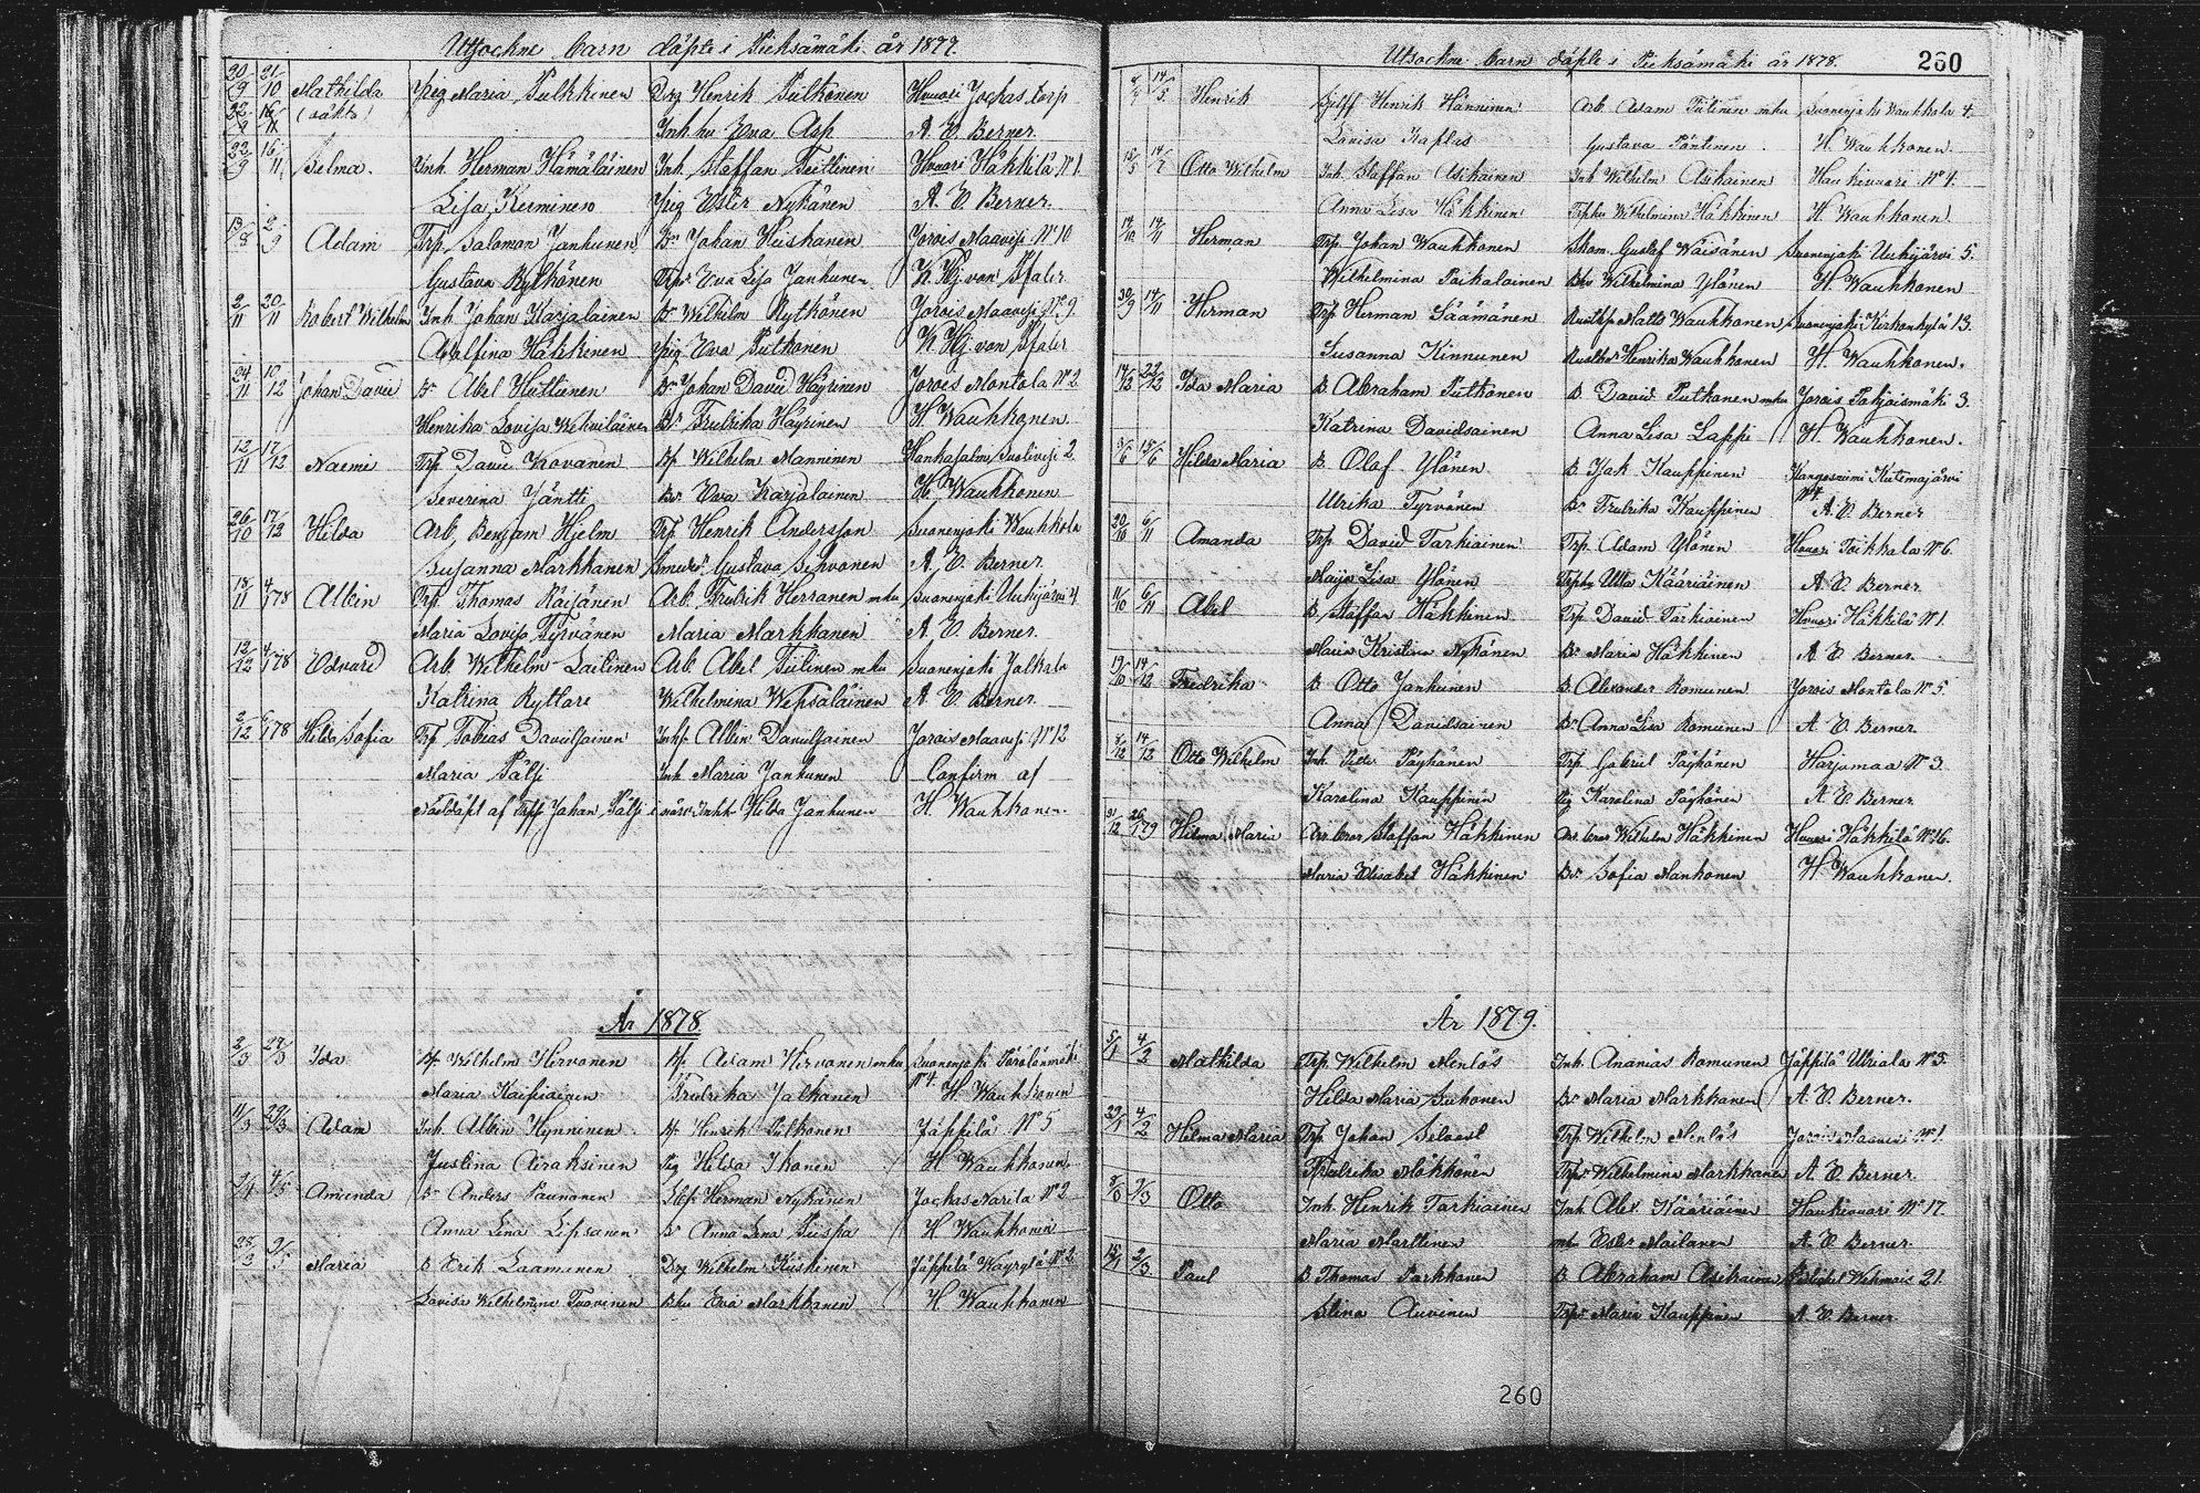 Utsockne barn döpte i Pieksämäki år 1877.
20/9 21/10 Mathilda Pig Maria Pulkkinen Drg Henrik Pulkonen Hvuori Jockas torp
(oäkta) Inh. hu Eva Asp A. E. Berner.
22/9 16/11 Selma. Inh. Herman Hämäläinen Inh. Staffan Teittinen Hvuori Häkkilä Nº 1.
Lisa Kerminen Pig Ester Nykänen A. E. Berner.
13/8 2/9 Adam Trp. Salomon Janhunen Bn Johan Heiskanen Jorois Maavesi Nº 10
Gustava Rytkönen Trps Eva Lisa Janhunen K. Hj. von Pfaler.
2/11 20/11 Robert Wilhelm Inh Johan Karjalainen Bn Wilhelm Rytkönen Jorois Maavesi Nº 9.
Adolfina Häkkinen Pig Eva Putkonen K. Hj. von Pfaler
24/11 10/12 Johan David Bn Abel Huttunen Bn Johan David Häyrinen Jorois Montola Nº 2
Henrika Lovisa Wehviläinen Bs Fredrika Häyrinen H. Wauhkonen.
12/11 17/12 Naemi Trp David Kovanen Bp Wilhelm Manninen Hankasalmi Suolivesi 2.
Severina Jäntti Bs Eva Karjalainen H. Wauhkonen
26/10 17/12 Hilda Arb. Benjam Hjelm Trp Henrik Andersson Suonenjoki Wauhkola
Susanna Markkanen Smeds. Gustava Sihvonen A. E. Berner.
18/11 4/1 78 Albin Trp. Thomas Räisänen Arb. Fredrik Herranen mhu Suonenjoki Uuhijärvi 4
Maria Lovisa Tyrvänen Maria Markkanen A. E. Berner.
12/12 4/1 78 Edvard Arb. Wilhelm Laitinen Arb. Abel Tiitinen mhu Suonenjoki Jalkala
Katrina Ryttare Wilhelmina Wepsäläinen A. E. Berner.
2/12 6/1 78 Hilda Sofia Trp Tobias Davidsainen Inhp. Albin Davidsainen Jorois Maavesi Nº 12
Maria Pälsi Inh Maria Janhunen Confirm af
Nöddöpt af Trpp Johan Pälsi i närv. Inhh Hilda Janhunen H. Wauhkonen.
År 1878
2/3 24/3 Ida Bp Wilhelm Hirvonen Bp. Adam Hirvonen mhu Suonenjoki Pörölänmäki
Maria Kaipiainen Fredrika Jalkanen Nº 4. H. Wauhkonen
11/3 29/3 Adam Inh. Albin Hynninen Bp Henrik Pulkonen Jäppilä Nº 5
Justina Airaksinen Pig Hilda Ikonen H Wauhkonen
4/5 Amanda Bn Anders Paunonen Herman Nykänen Jockas Narila Nº 2
Anna Lena Lipsanen Bs Anna Lena Piispa H Wauhkonen
28/3 3/5 Maria B Erik Laamanen Drg Wilhelm Kiiskinen Jäppilä Käyrylä Nº 2
Lovisa Wilhelmina Tuovinen Bhu Eva Markkanen H Wauhkonen
Utsockne barn döpte i Pieksämäki år 1878. 260
14/5 Henrik Henrik Hänninen Arb. Adam Tiitinen mhu Suonenjoki Wauhkola 4.
Lovisa Kaplas Gustava Pöntinen. H. Wauhkonen.
15/5 14/7 Otto Wilhelm Inh. Staffan Asikainen Inh Wilhelm Asikainen Haukivuori Nº 4.
Anna Lisa Häkkinen Trphu Wilhelmina Häkkinen H Wauhkonen.
14/10 14/11 Herman Trp. Johan Wauhkonen Skom. Gustaf Wäisänen Suonenjoki Uuhijärvi 5.
Wilhelmina Paikalainen Bhu Wilhelmina Ylönen H. Wauhkonen
30/9 14/11 Herman Trp Herman Säämänen Rusthp Matts Wauhkonen Suonenjoki Kirkonkylä 13.
Susanna Kinnunen Rusths Henrika Wauhkonen H. Wauhkonen.
14/12 22/12 Ida Maria B. Abraham Putkonen B. David Putkonen mhu Jorois Pohjoismäki 3.
Katrina Davidsainen Anna Lisa Lappi H. Wauhkonen.
3/6 15/6 Hilda Maria B. Olof Ylönen B Isak Kauppinen Kangasniemi Kutemajärvi
Ulrika Tyrvänen Bs Fredrika Kauppinen Nº 4. A. E. Berner
20/10 6/11 Amanda Trp. David Tarkiainen Trp. Adam Ylönen Hvuori Toikkala Nº 6.
Maija Lisa Ylönen Trphu Ulla Kääriäinen A. E. Berner.
11/10 6/11 Abel B. Staffan Häkkinen Trp David Tarkiainen Hvuori Häkkilä Nº 1.
Maria Kristina Nykänen Bs Maria Häkkinen A. E. Berner.
19/10 14/12 Fredrika B Otto Janhunen B. Alexander Romunen Jorois Montola Nº 5.
Anna Davidsainen Bs Anna Lisa Romunen A. E. Berner
8/12 14/12 Otto Wilhelm Inh. Petter Pöyhönen Trp. Gabriel Pöyhönen Harjumaa Nº 3.
Karolina Kauppinen Pig Karolina Pöyhönen A. E. Berner.
31/12 26/1 79 Hilma Maria Staffan Häkkinen Wilhelm Häkkinen Hvuori Häkkilä Nº 16.
Maria Elisabet Häkkinen Bs Sofia Mankonen H. Wauhkonen.
År 1879.
5/1 4/2 Mathilda Trp. Wilhelm Menlös Inh. Ananias Romunen Jäppilä Ulriala Nº 3.
Hilda Maria Suhonen Bs Maria Markkanen A. E. Berner.
29/1 4/2 Hilma Maria Trp Johan Trp Wilhelm Menlös Jorois Maavesi Nº 1.
Fredrika Mökkönen Trps Wilhelmina Markkanen A. E. Berner.
Otto Inh. Henrik Tarkiainen Inh. Alex. Kääriäinen Haukivuori Nº 17.
Maria Marttinen Ester Moilanen A. E. Berner.
2/3 Paul B Thomas Parkkonen B. Abraham Asikainen Wehmais 21.
Stina Auvinen Trps Maria Kauppinen A. E. Berner.
260